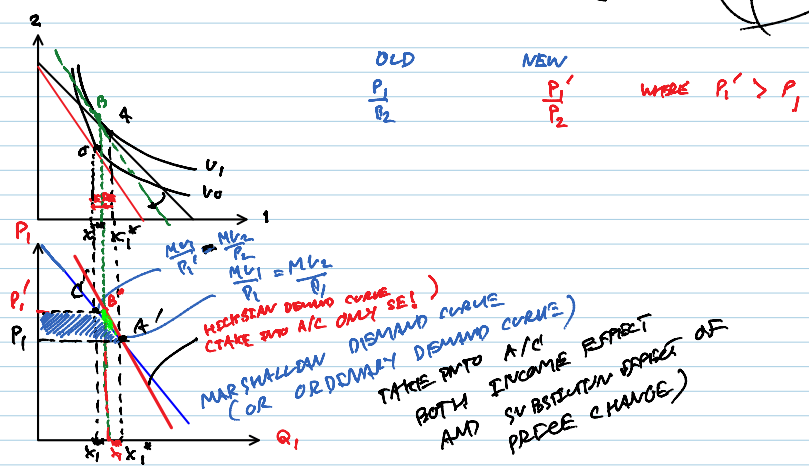 2
OLD
NEW
P₁
P₂
P₁'
P₂
WHERE P₁' > P₁
B
A
C
U₁
U₀
1
x₁*
P₁
MU₁/P₁' = MU₂/P₂
MU₁/P₁ = MU₂/P₁
P₁'
B'
A'
P₁
HICKSIAN DEMAND CURVE
(TAKE INTO A/C ONLY SE!)
MARSHALLIAN DEMAND CURVE
(OR ORDINARY DEMAND CURVE)
TAKE INTO A/C
BOTH INCOME EFFECT
AND SUBSTITUTION EFFECT OF
PRICE CHANGE)
x₁
x₁*
Q₁